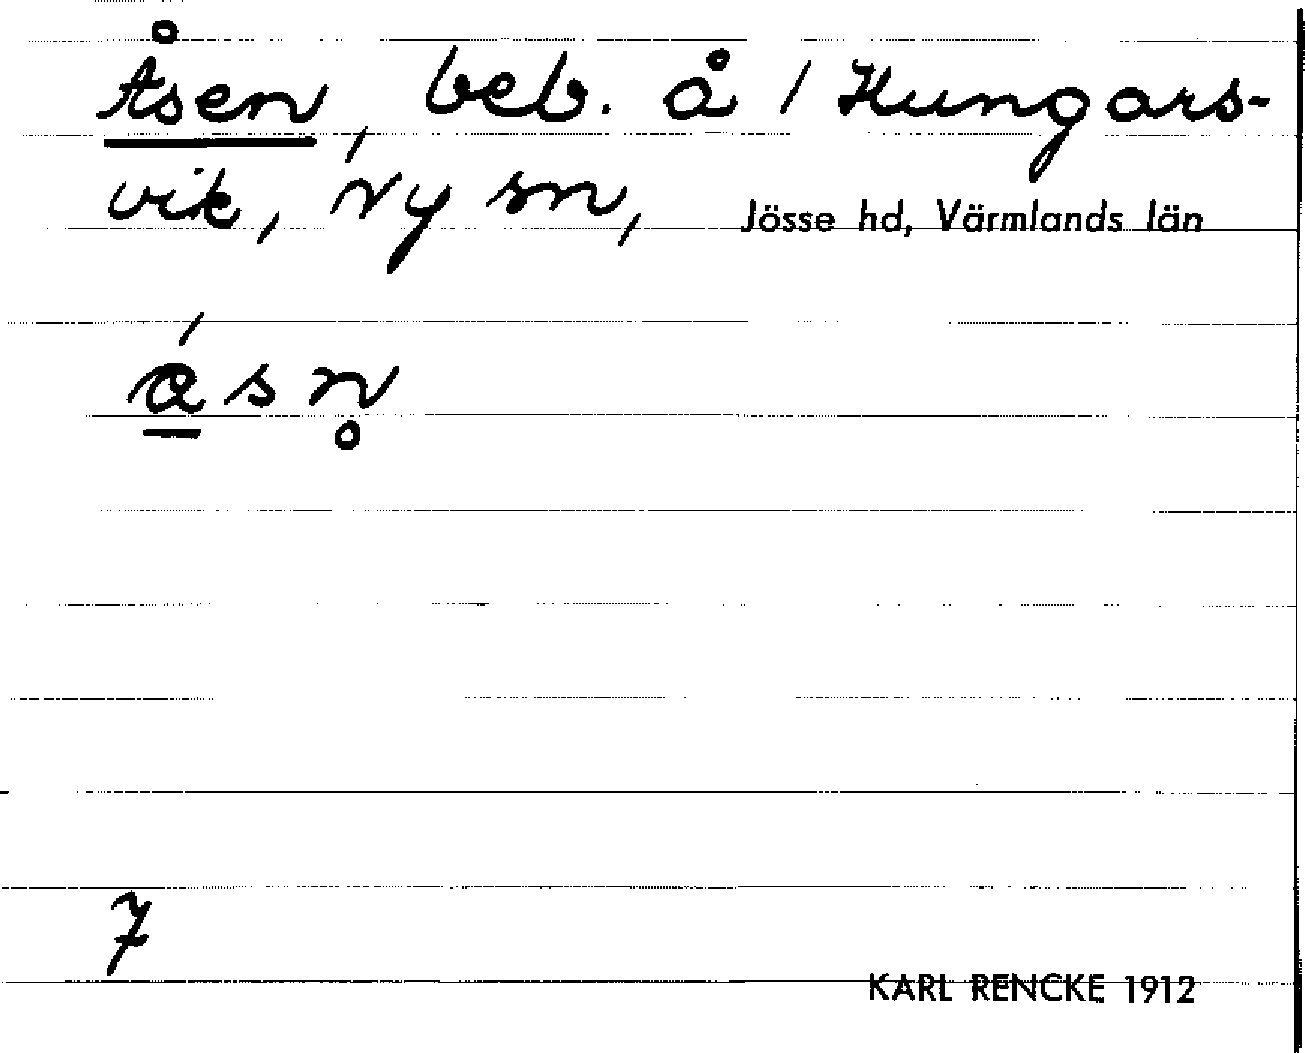 Åsen, beb. å 1 Hungars-
vik, Ny sn, Jösse hd, Värmlands län
ásn̥
7
KARL RENCKE 1912